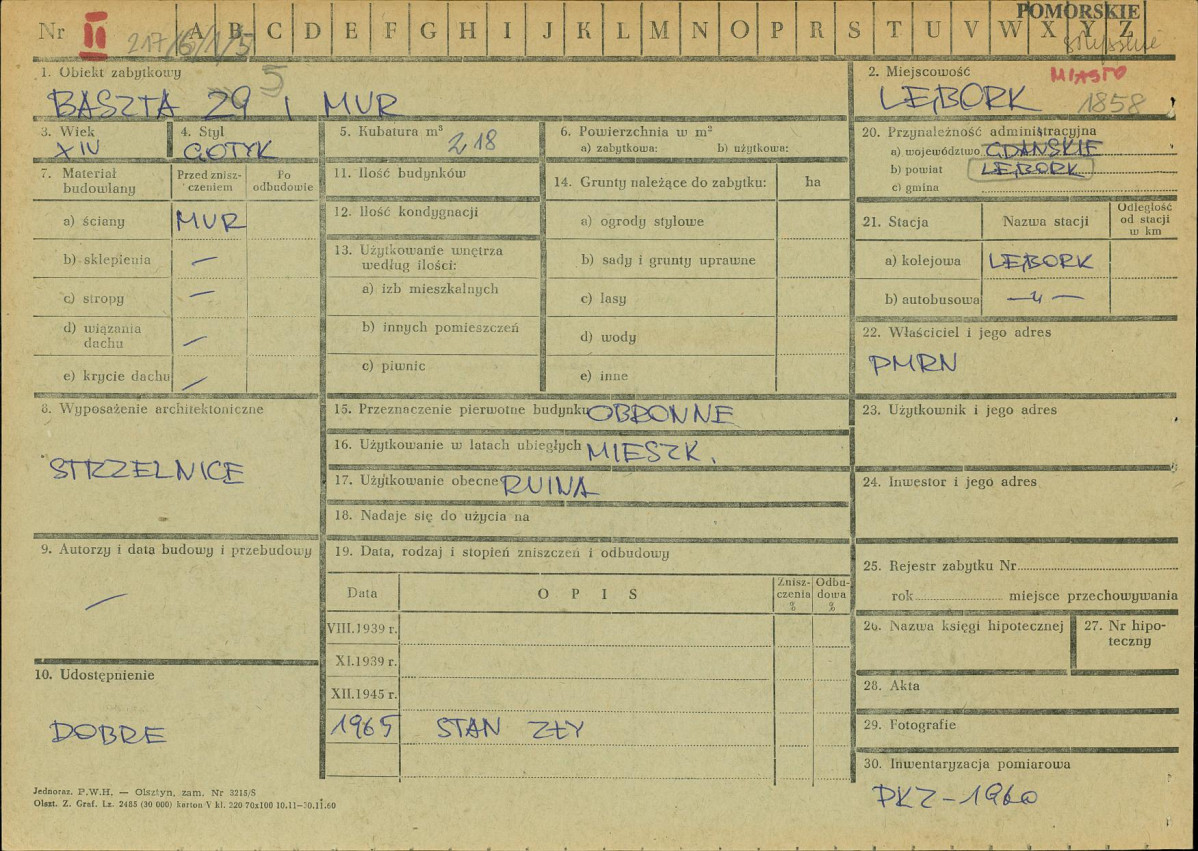 POMORSKIE
Nr II 217/6/1/5 A B C D E F G H I J K L M N O P R S T U V W X Y Z
słupskie
1. Obiekt zabytkowy 5
BASZTA 29 i MUR
2. Miejscowość MIASTO
LĘBORK 1858
3. Wiek
XIV
4. Styl
GOTYK
5. Kubatura m³
218
6. Powierzchnia w m²
a) zabytkowa: b) użytkowa:
20. Przynależność administracyjna
a) województwo GDAŃSKIE
b) powiat LĘBORK
c) gmina
7. Materiał budowlany
Przed znisz-
czeniem
Po
odbudowie
a) ściany MUR
b) sklepienia —
c) stropy —
d) wiązania
dachu —
e) krycie dachu —
11. Ilość budynków
12. Ilość kondygnacji
13. Użytkowanie wnętrza
według ilości:
a) izb mieszkalnych
b) innych pomieszczeń
c) piwnic
14. Grunty należące do zabytku: ha
a) ogrody stylowe
b) sady i grunty uprawne
c) lasy
d) wody
e) inne
21. Stacja Nazwa stacji
Odległość
od stacji
w km
a) kolejowa LĘBORK
b) autobusowa —„—
22. Właściciel i jego adres
PMRN
8. Wyposażenie architektoniczne
STRZELNICE
15. Przeznaczenie pierwotne budynku OBRONNE
16. Użytkowanie w latach ubiegłych MIESZK.
17. Użytkowanie obecne RUINA
18. Nadaje się do użycia na
23. Użytkownik i jego adres
24. Inwestor i jego adres
9. Autorzy i data budowy i przebudowy
—
19. Data, rodzaj i stopień zniszczeń i odbudowy
Data OPIS
Znisz-
czenia
%
Odbu-
dowa
%
VIII.1939 r.
XI.1939 r.
XII.1945 r.
1965 STAN ZŁY
25. Rejestr zabytku Nr
rok miejsce przechowywania
26. Nazwa księgi hipotecznej
27. Nr hipo-
teczny
10. Udostępnienie
DOBRE
28. Akta
29. Fotografie
30. Inwentaryzacja pomiarowa
PKZ-1960
Jednoraz. P.W.H. — Olsztyn, zam. Nr 3215/S
Olszt. Z. Graf. Lz. 2485 (30 000) karton V kl. 220 70x100 10.11-30.11.60